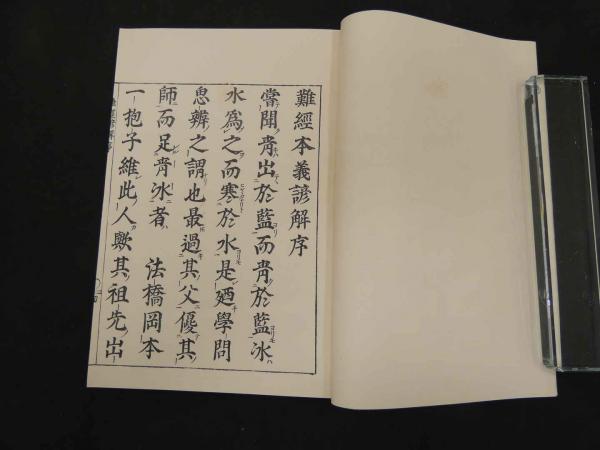 難經本義諺解序
甞聞青出於藍而青於藍冰
水為之而寒於水是廼學問
思辨之謂也最過其父優其
師而足青冰者　法橋岡本
一抱子維此人歟其祖先出